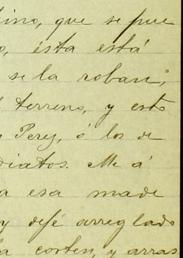 tino, que se pue
o, ésta está
se la roban;
l terreno, y esto
Perez, ó los de
diatos. Me á
a esa made
y dejé arreglado
la corten, y arras